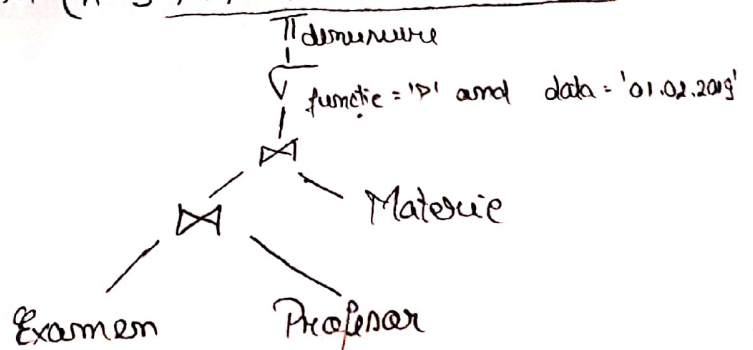 Π denumire
σ functie = 'P' and data = '01.02.2019'
⋈
⋈ Materie
Examen Profesor